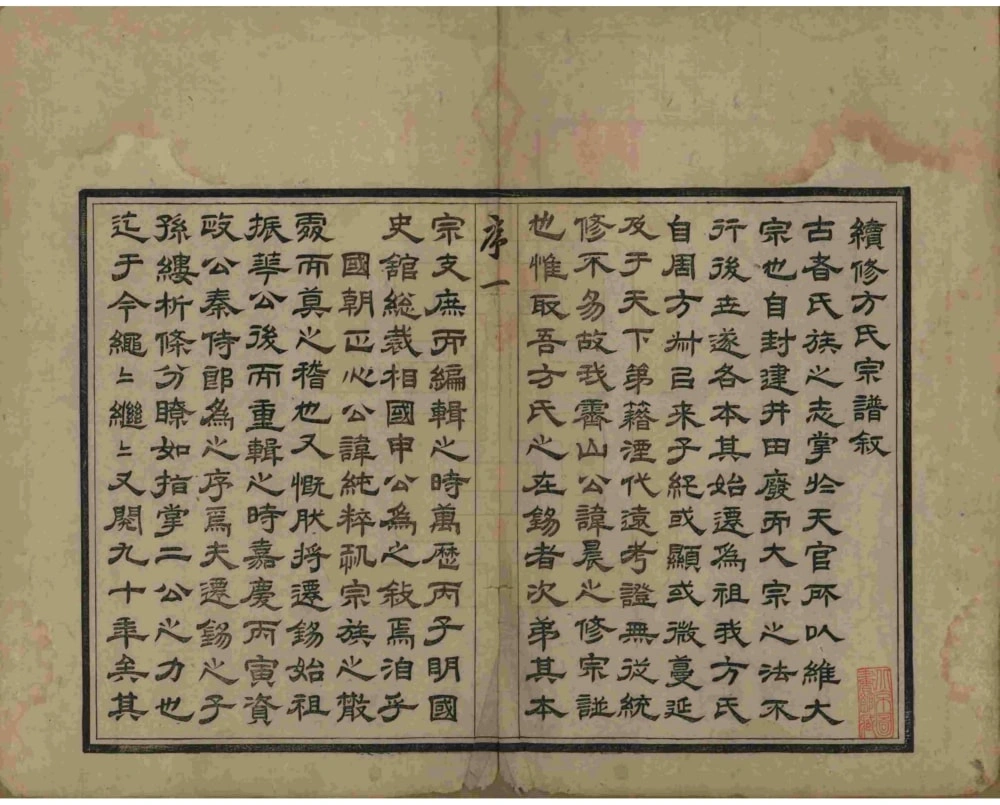 續修方氏宗譜叙
古者氏族之志掌於天官所以維大
宗也自封建井田廢而大宗之法不
行後世遂各本其始遷為祖我方氏
自周方叔㠯来子紀或顯或微蔓延
及于天下第藉湮代遠考證無從統
修不易故我霽山公諱晨之修宗譜
也惟取吾方氏之在錫者次第其本
序一
宗支庶而編輯之時萬歷丙子明國
史舘總裁相國申公為之敘焉洎乎
國朝正心公諱純粹䣛宗族之散
霰而莫之稽也又慨肰将遷錫始祖
振華公後而重輯之時嘉慶丙寅資
政公秦侍郎為之序焉夫遷錫之子
孫縷析條分瞭如指掌二公之力也
迄于今繩〻繼〻又閱九十年矣其